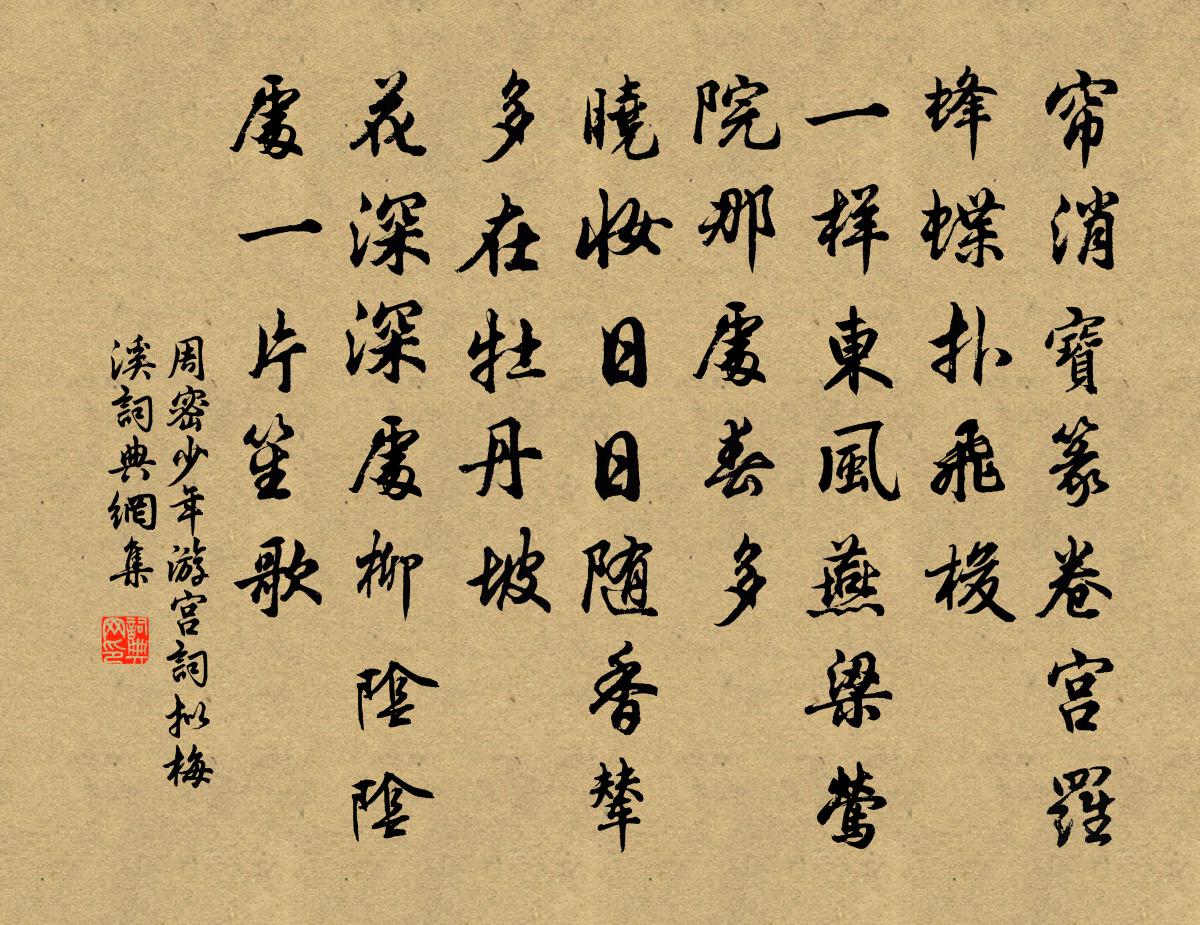 帘消寶篆卷宮羅
蜂蝶扑飛梭
一样東風燕梁鶯
院那處春多
曉妝日日随香輦
多在牡丹坡
花深深處柳陰陰
處一片笙歌
周密少年游宮詞拟梅
溪詞典網集
詞典网印